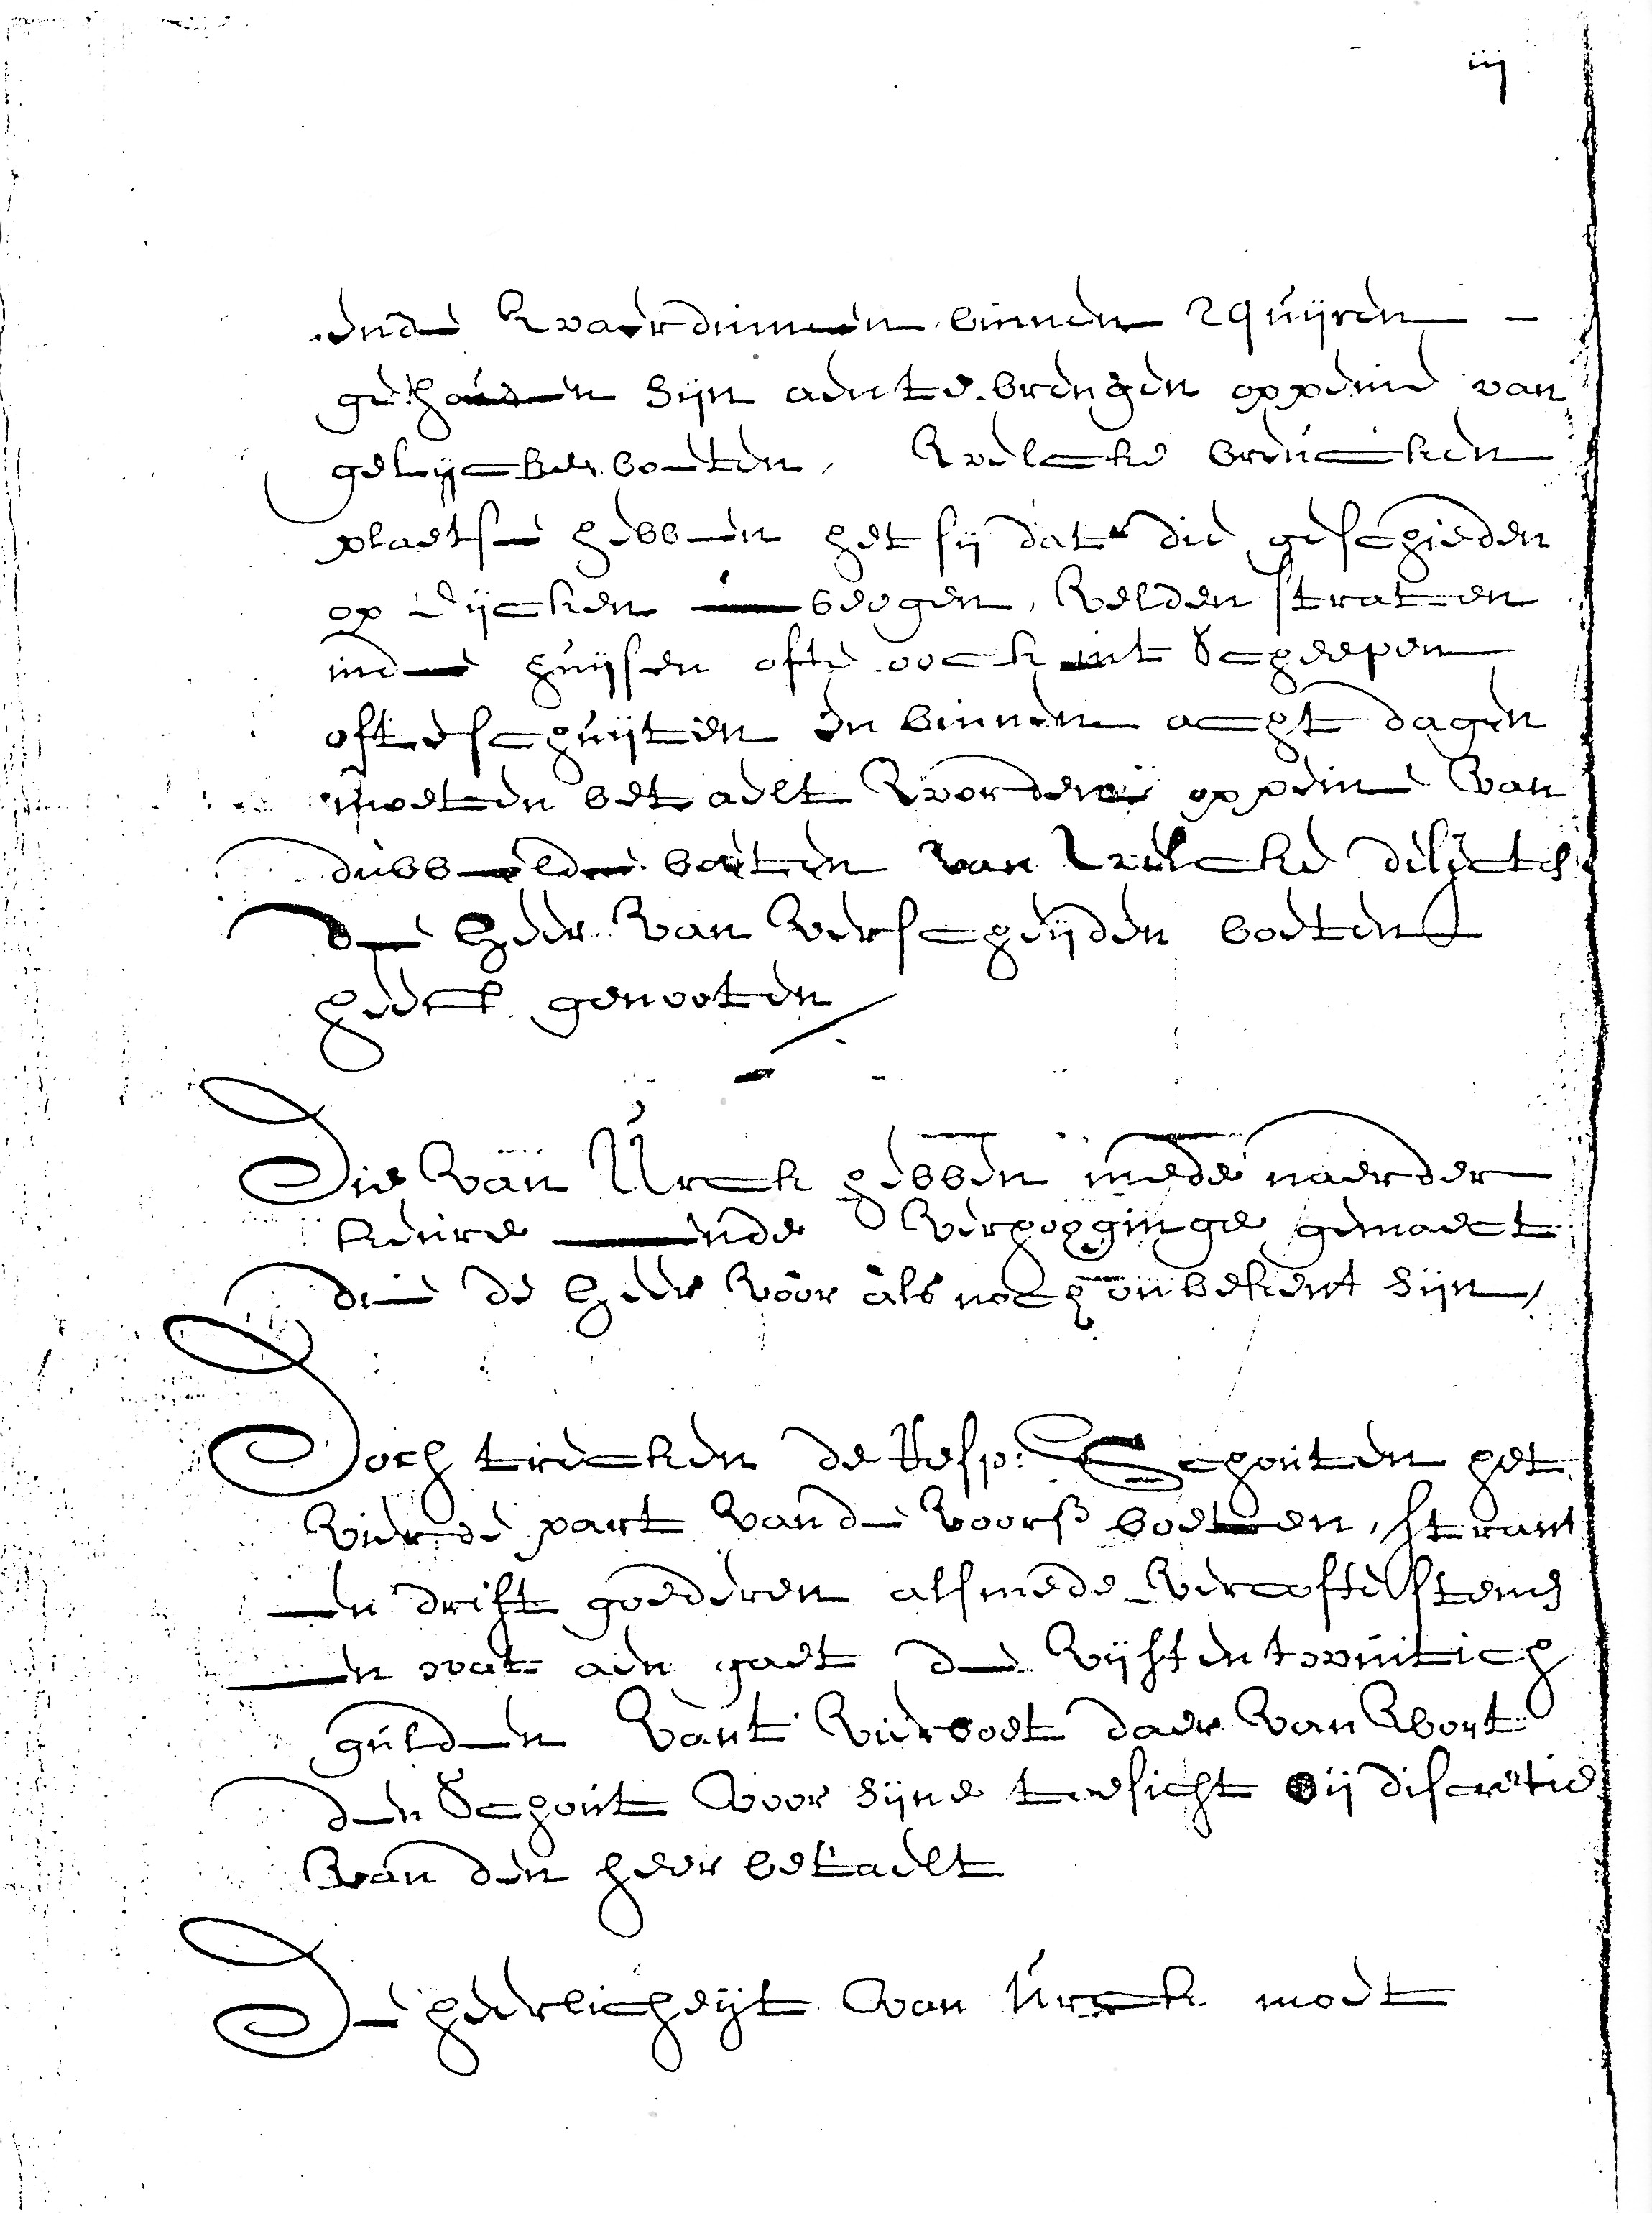 iij
ende Waerdinnen binnen 24 uijren
gehouden sijn aen te brengen op peine van
gelijcke boeten, Welcke breucken
plaetse hebben het sij dat die geschieden
op Dijcken weegen, Velden straten
inde huijsen ofte oock int Scheepen
ofte schuijten en binnen acht dagen
moeten betaelt Worden op peine Van
dubbelde boeten van Welcke delicten
de Heer Van Verscheijden boeten
heeft genooten
Die Van Urck hebben mede naerder
keure ende Verhooginge gemaect
die de Heer Voor als noch onbekent sijn,
Doch trecken de Resp: Schouten het
Vierde part Van de Voors boeten, strant
en drift goederen alsmede Vercofte steenen
en wat aen gaet de Vijftentwintich
gulden Vant Vierboet daer Van Wort
den Schout Voor sijne toesicht bij discretie
Van den heer betaelt
De heerlicheijt Van Urck moet